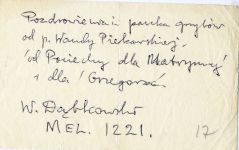 Pozdrowienia i paczka grzybów
od p. Wandy Piekarskiej,
od Pociechy dla Matrymej
i dla Grzegorza.
W. Dąbkowski
MEL. 1221.
17